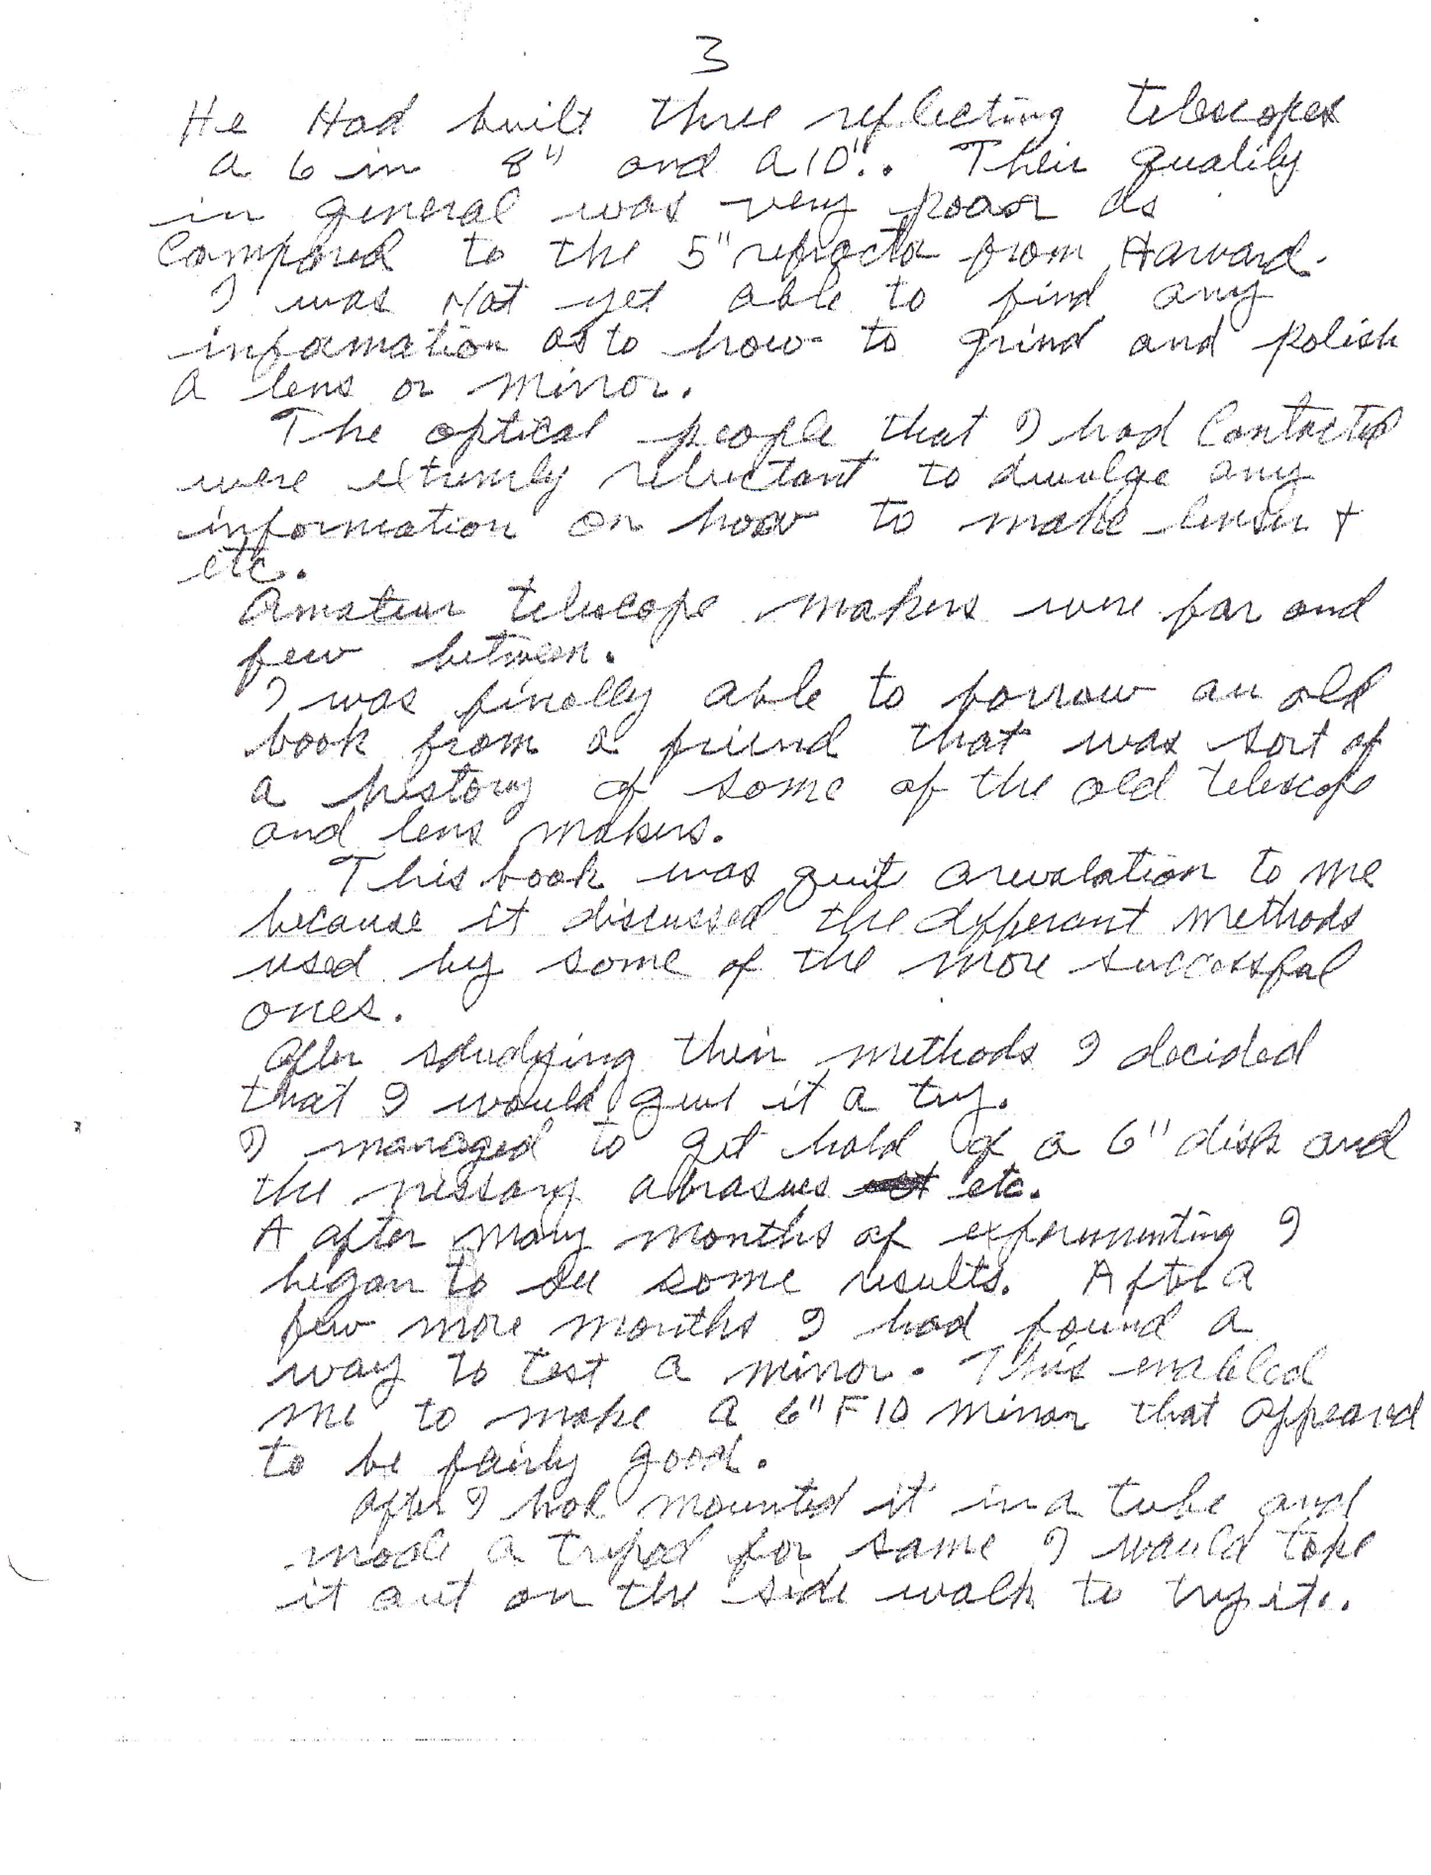 3
He Had built three reflecting telescopes
a 6 in 8" and a 10". Their quality
in general was very poor as
Compared to the 5" refractor from Harvard.
I was Not yet able to find any
information as to how to grind and polish
a lens or mirror.
The optical people that I had Contacted
were extremly reluctant to divulge any
information on how to make lenses +
etc.
Amateur telescope makers were far and
few between.
I was finally able to borrow an old
book from a friend that was sort of
a history of some of the old telescope
and lens makers.
This book was quit a revalation to me
because it discussed the differant methods
used by some of the more successful
ones.
After studying their methods I decided
that I would give it a try.
I managed to get hold of a 6" disk and
the nessary abrasives etc.
A after many months of experimenting I
began to see some results. After a
few more months I had found a
way to test a mirror. This enabled
me to make a 6" F10 mirror that appeared
to be fairly good.
After I had mounted it in a tube and
made a tripod for same I would take
it out on the side walk to try it.